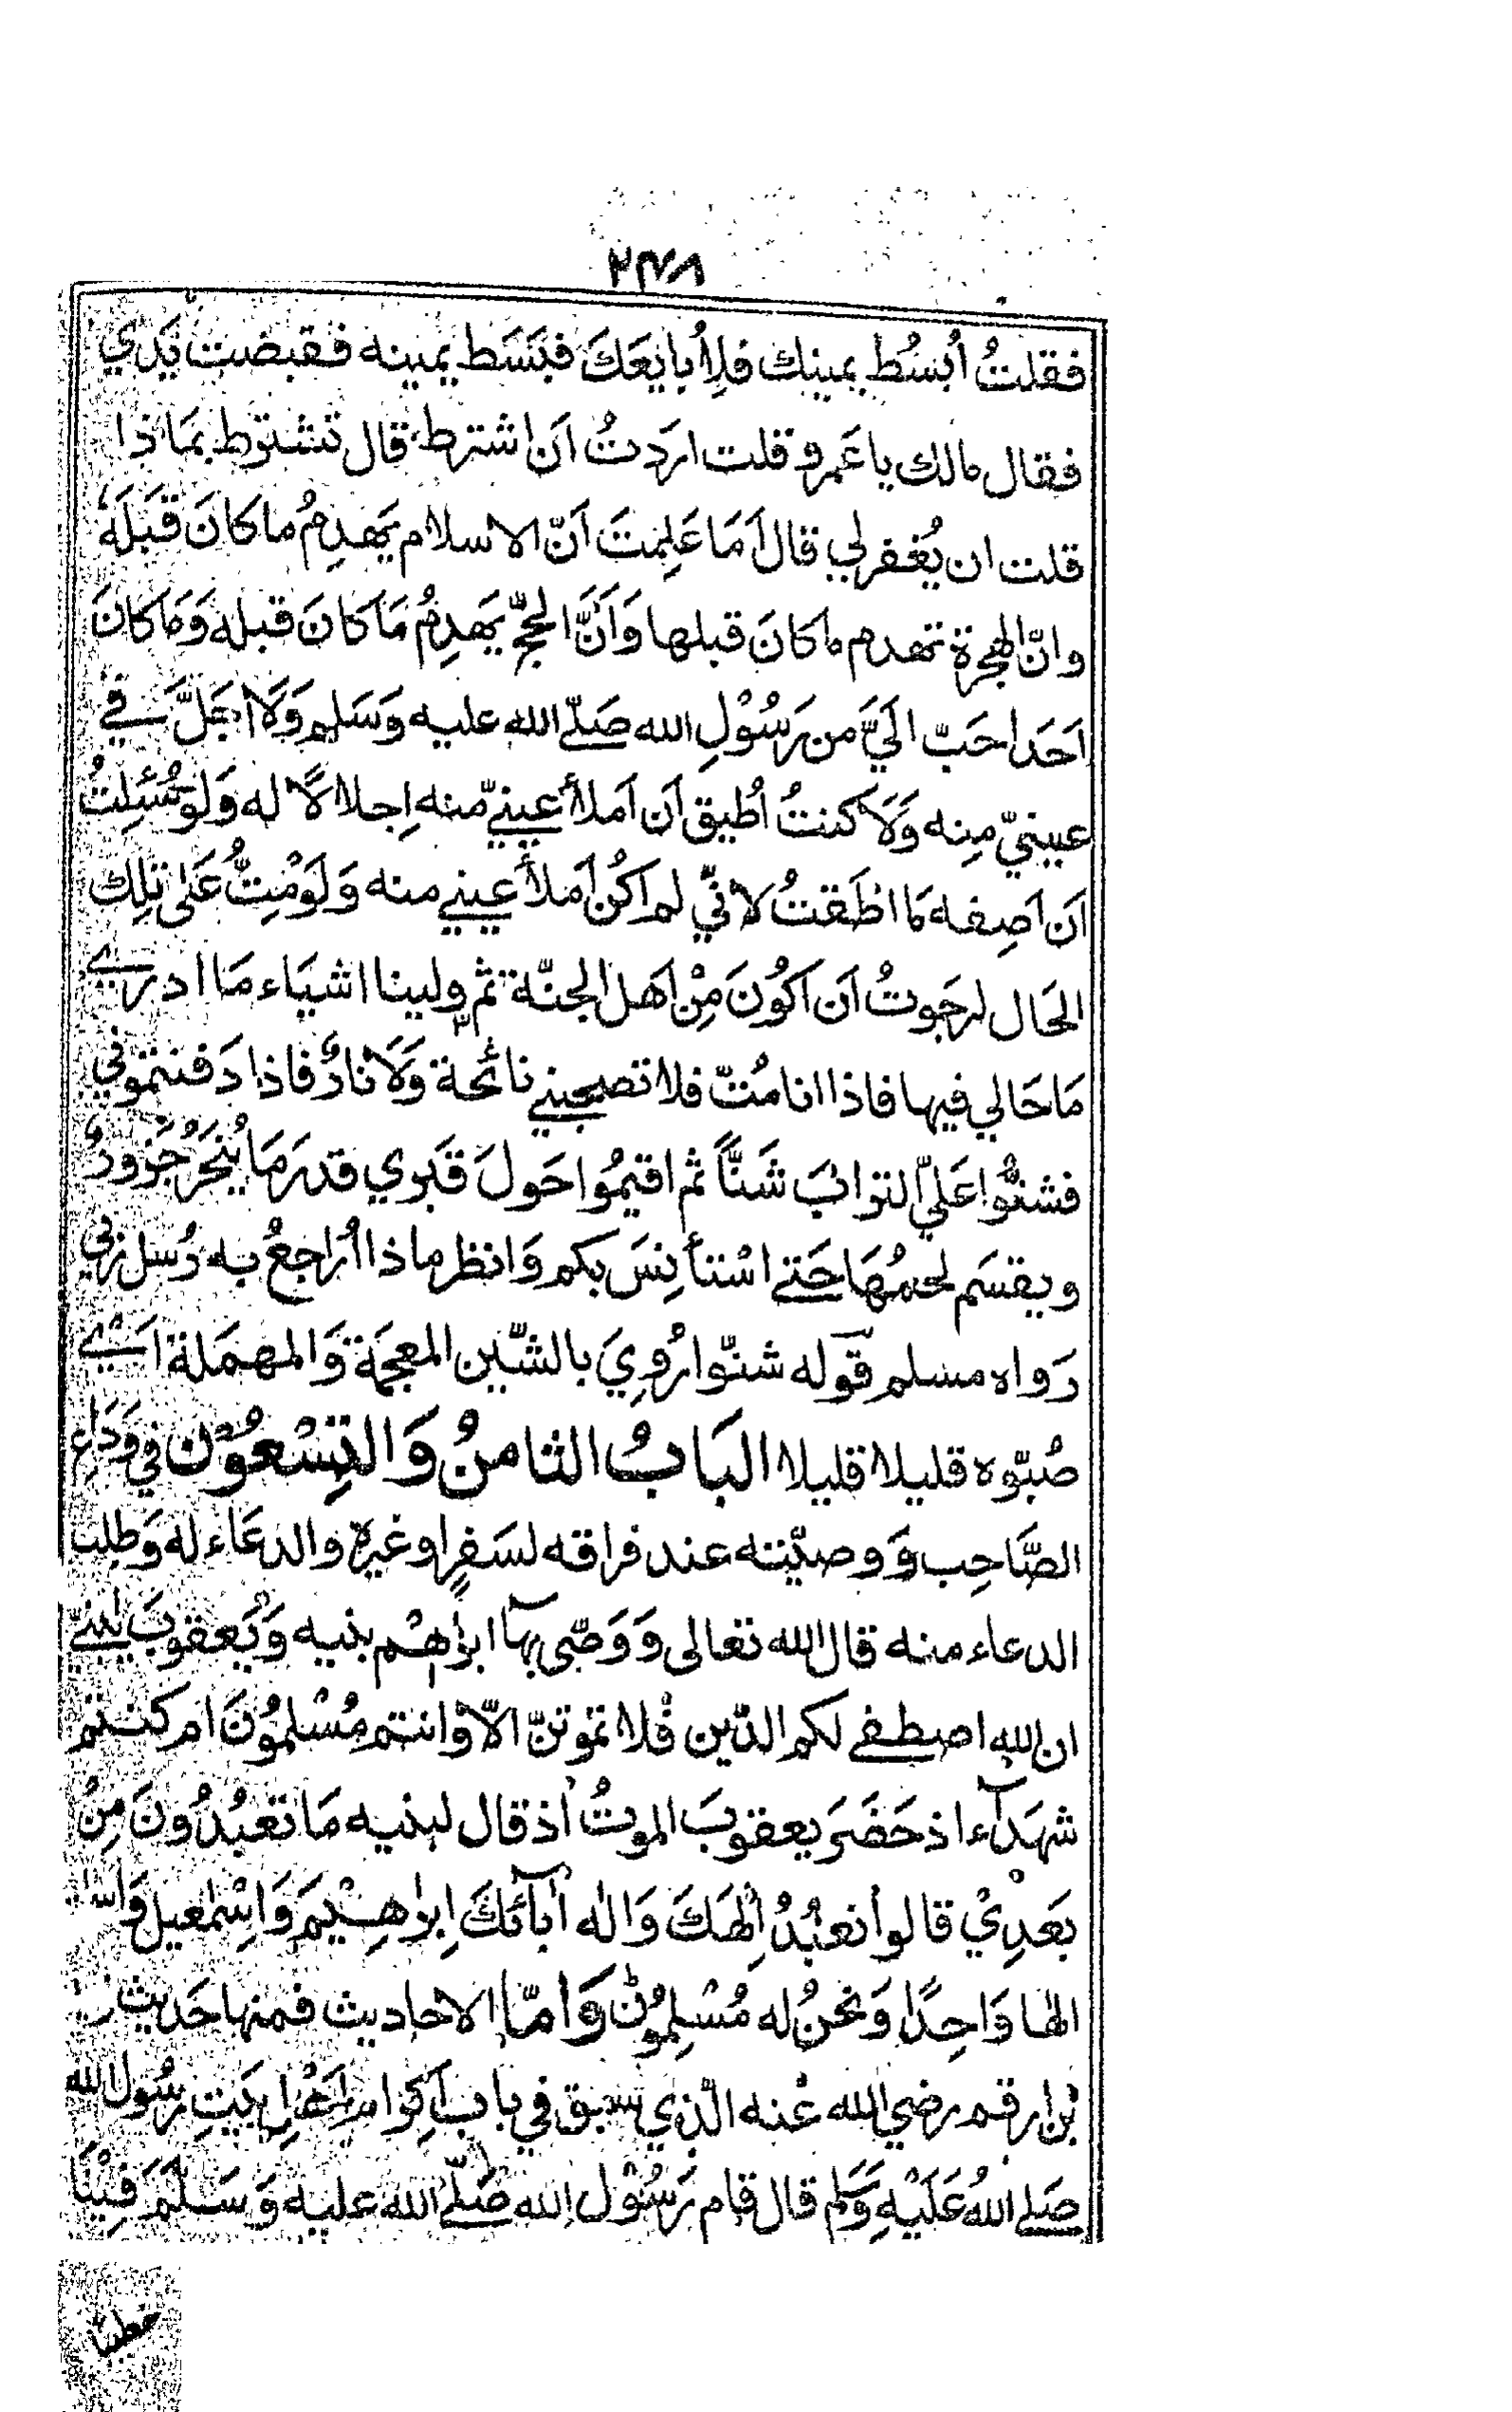 ٢٦٨
فقلتُ أبسُط يمينك فلِأُبايعَكَ فبَسَط يمينه فقبضت يَدي
فقال مالك يا عَمرو قلت ارَدتُ اَن اشترط قال تشترط بمَا ذا
قلت ان يُغفر لي قال اَمَا عَلِمتَ اَنّ الاسلام يَهدِمُ ما كانَ قَبَلَهُ
وانّ الهجرة تهدم ما كانَ قبلها وَاَنَّ الحجّ يَهدِمُ مَا كانَ قبله وَمَا كانَ
اَحَد احَبّ الَيَّ من رَسُوْلِ الله صَلّے الله عليه وَسَلم وَلَا اجَلَّ في
عينيّ مِنه وَلَا كنتُ اُطيق اَن اَملأ عينيّ منه اِجلالاً له وَلو سُئِلتُ
اَن اَصِفه مَا اطَقتُ لانّي لم اكُن اَملأ عيني منه وَلَوْمُتُّ عَلى تِلك
الحَال لرجَوتُ اَن اَكُونَ مِنْ اَهل الجنّة ثم ولينا اشيَاء مَا ادري
مَا حَالي فيها فاذا انا مُتّ فلا تصحبني نائحة وَلَا نارٌ فاذا دَفنتموني
فشنُّوا عَليّ الترابَ شَنًّا ثم اقيمُوا حَولَ قَبري قدرَ مَا يُنحَرُ جَزورٌ
ويقسَم لحمُهَا حَتى اسْتأنِسَ بكم وَانظر ماذا اُراجعُ به رُسل ربي
رَواه مسلم قوله شنّوا رُوِيَ بالشّين المعجمَة وَالمهمَلة اَي
صُبّوه قليلا قليلا البَابُ الثامنُ وَالتِسْعُوْن في وَدَاعِ
الصَّاحِب وَوصيّته عند فراقه لسَفرٍ او غيره والدعَاء له وَطلب
الدعاء منه قال الله تعالى وَوَصّى بهآ ابرٰهٖم بنيه وَيَعقوبَ يٰبني
ان الله اصطفى لكم الدّين فلا تموتنّ الّا وانتم مُسْلمُوْنَ ام كنتم
شهَدآء اذ حَضَرَ يعقوبَ الموتُ اذ قال لبنيه مَا تعبُدُونَ مِنْ
بَعدِيْ قالوا نعبُدُ اِلٰهَكَ وَالٰه اٰبآئكَ اِبرٰهِيْمَ وَاِسْمٰعيل وَاسْ
الٰها وَاحِدًا وَنحنُ له مُسْلِمُوْن وَامّا الاحاديث فمنها حَديث
بن ارقم رضي الله عنه الّذي سبق في باب اكِرام اَهْلِ بَيتِ رسُول الله
صَلى اللهُ عَلَيْهِ وَسَلم قال قام رَسُوْل الله صَلّى الله عليه وَسَلّمَ فِيْنَا
خطيبا